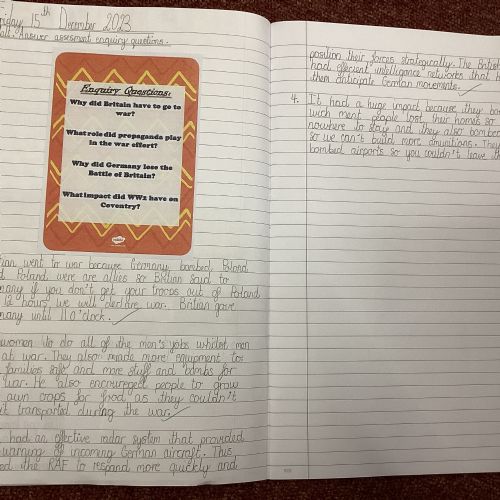 15th December 2023
Answer assessment enquiry questions.
Enquiry Questions:
Why did Britain have to go to
war?
What role did propaganda play
in the war effort?
Why did Germany lose the
Battle of Britain?
What impact did WW2 have on
Coventry?
went to war because Germany bombed Poland
Poland were are allies so Britian said to
if you don't get your troops out of Poland
12 hours we will declare war. Britian gave
until 11 O'clock.
women to do all of the men's jobs whilst men
at war. They also made more equipment for
families safe and more stuff and bombs for
war. He also encouraged people to grow
own crops for food as they couldn't
it transported during the war.
had an effective radar system that provided
warning of incoming German aircraft. This
the RAF to respond more quickly and
position their forces strategically. The British
had efficient intelligence networks that
them anticipate German movements.
4. It had a huge impact because they
wich ment people lost their homes so
nowhere to stay and they also bombed
so we can't build more amunitions. They
bombed airports so you couldn't leave